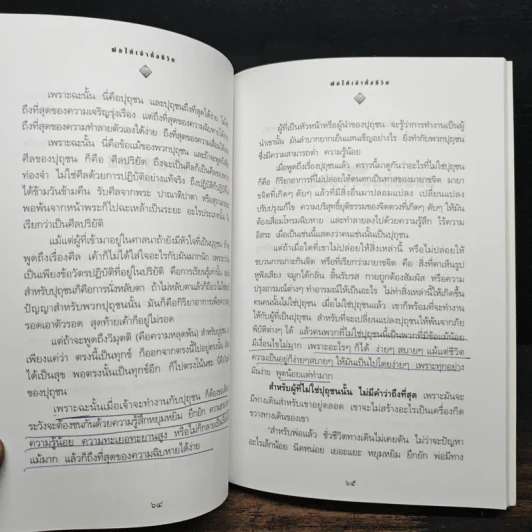 พ่อให้เจ้าทั้งชีวิต
เพราะฉะนั้น นี่คือปุถุชน และปุถุชนถึงที่สุดได้ง่าย
ถึงที่สุดของความเจริญรุ่งเรือง แต่ถึงที่สุดของความฉิบหายได้ง่าย
ถึงที่สุดของความทำลายตัวเองได้ง่าย
เพราะฉะนั้น นี่คือข้อแม้ของพวกปุถุชน
ศีลของปุถุชน ก็คือ ศีลปริยัติ ถึงจะเป็นศีลก็เป็นศีล
ท่องจำ ไม่ใช่ศีลด้วยการปฏิบัติอย่างแท้จริง
ได้ข้ามวันข้ามคืน รับศีลจากพระ ปาณาติปาตา
พอพ้นจากหน้าพระก็ไปฉะเหล้าเป็นระยะ อะไรประเภทนั้น
เรียกว่าเป็นศีลปริยัติ
แม้แต่ผู้ที่เข้ามาอยู่ในศาสนาถ้ายังมีหัวใจที่เป็นปุถุชน
พูดถึงเรื่องศีล เค้าก็ไม่ได้ใส่ใจอะไรกับมันมากนัก
เป็นเพียงข้อวัตรปฏิบัติที่อยู่ในปริยัติ คือการเรียนรู้เท่านั้น
สำหรับปุถุชนก็คือการนั่งหลับตา ถ้าไม่หลับตาแล้วก็ถือว่าไม่
ปัญญาสำหรับพวกปุถุชนนั้น มันก็คือกิริยาอาการเพื่อความ
รอดเอาตัวรอด สุดท้ายเค้าก็อยู่ไม่รอด
แต่ถ้าจะพูดถึงวิมุตติ (คือความหลุดพ้น) สำหรับปุถุชน
เพียงแค่ว่า ตรงนี้เป็นทุกข์ ก็ออกจากตรงนี้ไปอยู่ตรงนั้น
ได้เป็นสุข พอตรงนั้นเป็นทุกข์อีก ก็ไปตรงโน้นซะ
ของปุถุชน
เพราะฉะนั้นเมื่อเจ้าจะทำงานกับปุถุชน ก็ต้อง
ระวังจะต้องชนกันด้วยความรู้สึกหยุมหยิม ยึกยัก
ความรู้น้อย ความทะเยอทะยานสูง หรือไม่ก็
แม้มาก แล้วก็ถึงที่สุดของความฉิบหายได้ง่าย
๖๔
พ่อให้เจ้าทั้งชีวิต
ผู้ที่เป็นหัวหน้าหรือผู้นำของปุถุชน จะรู้ว่าการทำงานเป็นผู้
นำเขานั้น มันลำบากยากเย็นแสนเข็ญอย่างไร ยิ่งทำกับพวกปุถุชน
ซึ่งมีความสามารถต่ำ ความรู้น้อย
เมื่อพูดถึงเรื่องปุถุชนแล้ว คราวนี้มาดูกันว่าอะไรที่ไม่ใช่ปุถุชน
ก็คือ กิริยาอาการที่ไม่ปล่อยให้ตนตกเป็นทาสของมายาจิต มายา
จิตที่เกิดๆ ดับๆ แล้วที่มีสิ่งอื่นมาปลอมแปลง เปลี่ยนแปลง
ปรับปรุงแก้ไข ความบริสุทธิ์ยุติธรรมของจิตดวงที่เกิดๆ ดับๆ ให้มัน
ต้องเสื่อมโทรมฉิบหาย และทำลายลงไปด้วยความรู้สึก ไร้ความ
อิสระ เมื่อเป็นเช่นนี้แสดงว่าคนเช่นนั้นเป็นปุถุชน
แต่ถ้าเมื่อใดที่เขาไม่ปล่อยให้สิ่งเหล่านี้ หรือไม่ปล่อยให้
ขบวนการเกาะกินจิต หรือที่เรียกว่ามายาของจิต คือ สิ่งที่ตาเห็นรูป
หูฟังเสียง จมูกได้กลิ่น ลิ้นรับรส กายถูกต้องสัมผัส หรือความ
ปรุงอารมณ์ต่างๆ ทำอารมณ์ให้เป็นอะไร ไม่ทำสิ่งเหล่านี้ให้เกิดขึ้น
คนคนนั้นไม่ใช่ปุถุชน เมื่อไม่ใช่ปุถุชนแล้ว เขาก็พร้อมที่จะทำงาน
ให้กับผู้ที่เป็นปุถุชน สำหรับที่จะเปลี่ยนแปลงปุถุชนให้พ้นจากภัย
พิบัติต่างๆ ได้ แล้วคนพวกที่ไม่ใช่ปุถุชนนี้เป็นพวกที่มีข้อแม้น้อย
มีเงื่อนไขไม่มาก เพราะอะไรๆ ก็ได้ ง่ายๆ สบายๆ แม้แต่ชีวิต
ความเป็นอยู่ก็ง่ายๆสบายๆ ให้มันเป็นไปโดยง่ายๆ เพราะทุกอย่าง
มันง่าย พูดน้อยแต่ทำมาก
สำหรับผู้ที่ไม่ใช่ปุถุชนนั้น ไม่มีคำว่าถึงที่สุด เพราะมันจะ
มีทางเดินสำหรับเขาอยู่ตลอด เขาจะไม่สร้างอะไรเป็นเครื่องกีด
ขวางทางเดินของเขา
"สำหรับพ่อแล้ว ชั่วชีวิตทางเดินไม่เคยตัน ไม่ว่าจะปัญหา
อะไรเล็กน้อย นิดหน่อย เยอะแยะ หยุมหยิม ยึกยัก พ่อมีทาง
๖๕